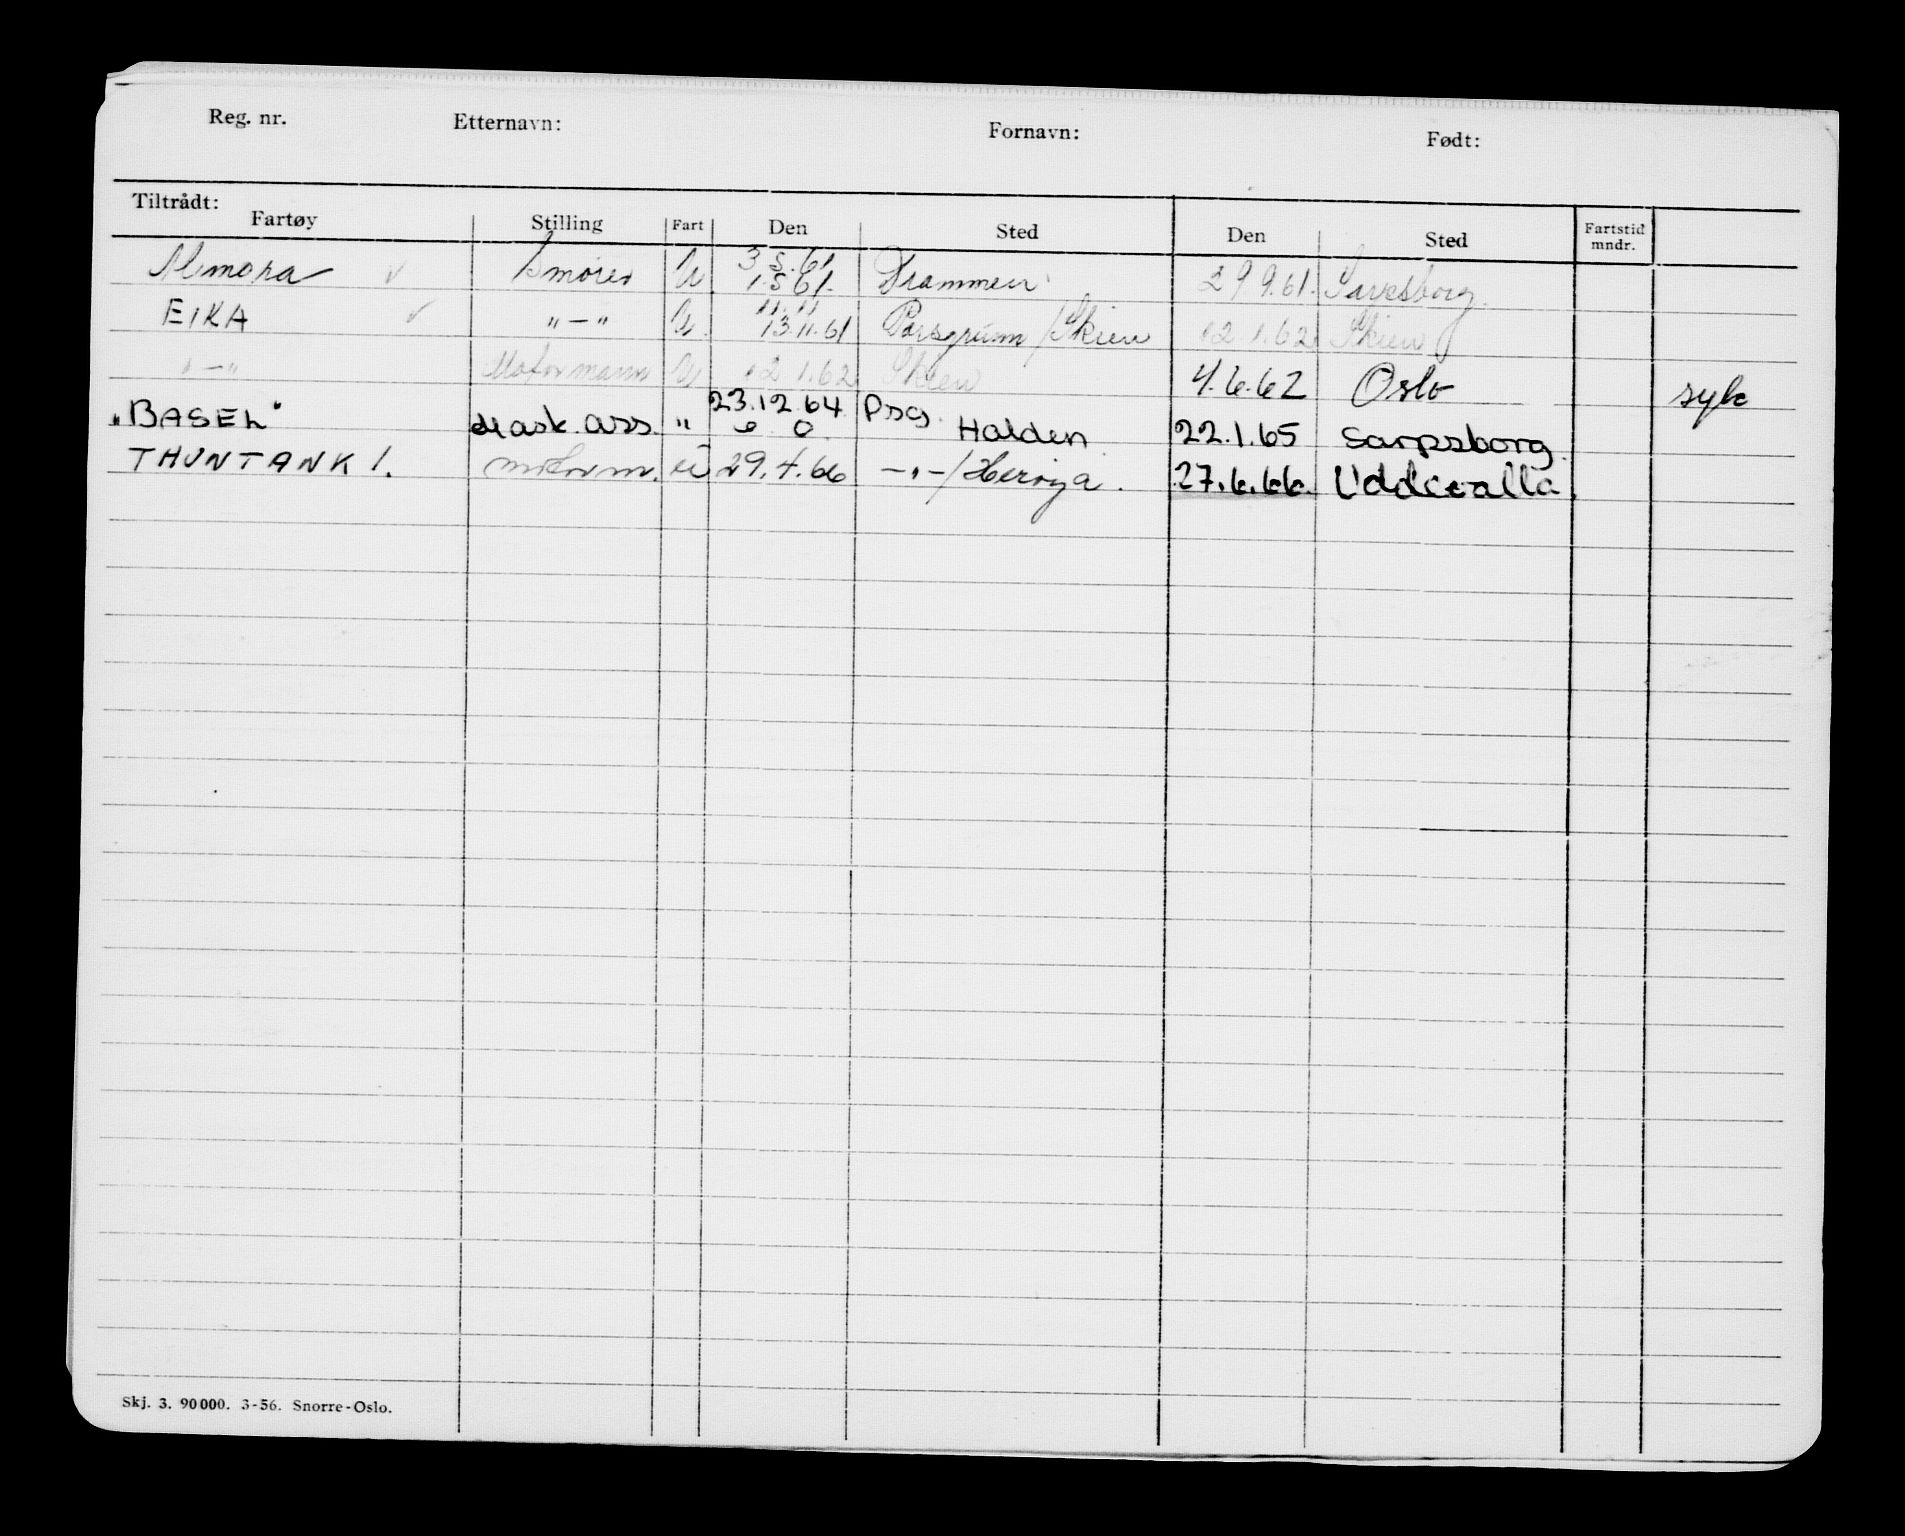 Reg. nr. Etternavn: Fornavn: Født:
Tiltrådt:
Fartøy Stilling Fart Den Sted Den Sted Fartstid mndr.
3 5.61
Smører U 1.5 61. Drammen 29 9.61. Sarpsborg.
11.11
EIKA "-" U. 13.11.61 Porsgrunn/Skien 12 1.62 Skien
"-" Motormann U 12 1.62 Skien 4.6.62 Oslo syk
23.12.64 Psg.
"BASEL" Mask. ass. " Halden 22.1.65 Sarpsborg.
THUNTANK 1. motorm. U 29.4.66 -"-/Herøya. 27.6.66. Uddevalla
Skj. 3. 90000. 3-56. Snorre-Oslo.